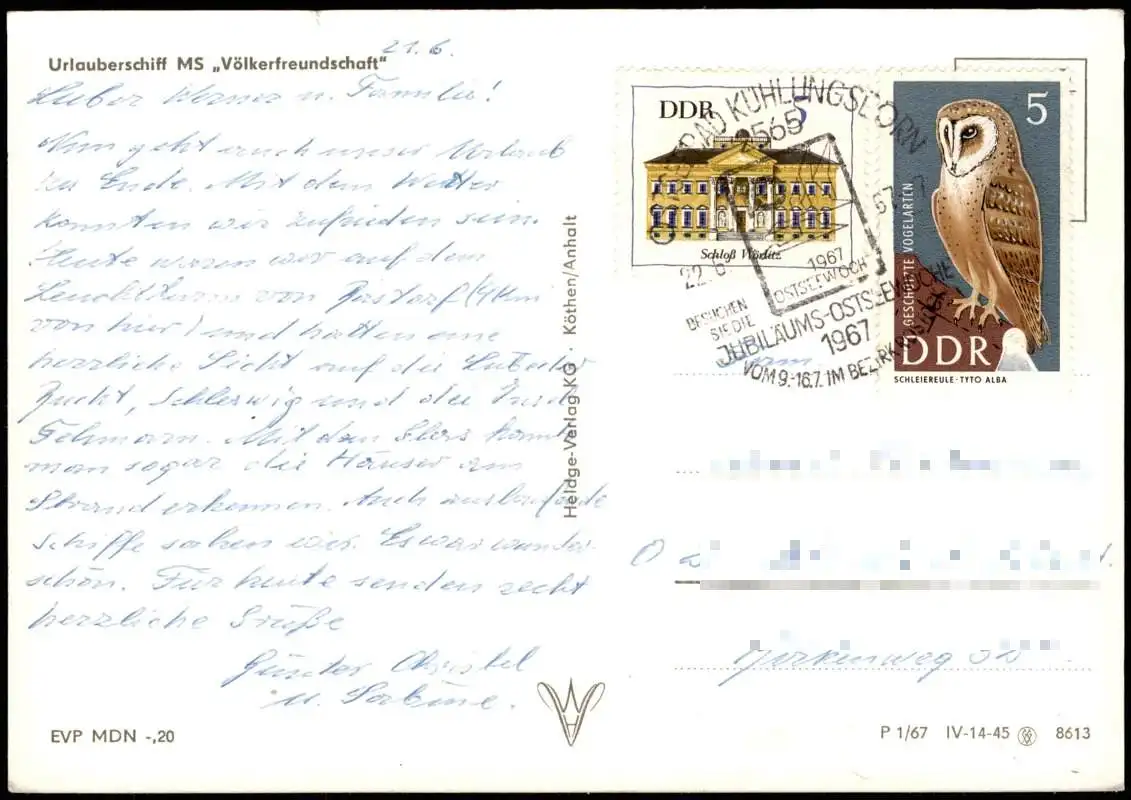 21. 6.
Urlauberschiff MS „Völkerfreundschaft"
Lieber Werner u. Familie!
Nun geht auch unser Urlaub
zu Ende. Mit dem Wetter
konnten wir zufrieden sein.
Heute waren wir auf dem
Leuchtturm von Bastorf (4 km
von hier) und hatten eine
herrliche Sicht auf die Lübecker
Bucht, Schleswig und die Insel
Fehmarn. Mit dem Glas konnte
man sogar die Häuser am
Strand erkennen. Auch auslaufende
Schiffe sahen wir. Es war wunder-
schön. Für heute senden recht
herzliche Grüße
Günter Christel
u. Sabine.
EVP MDN -,20
Heldge-Verlag KG · Köthen/Anhalt
DDR 5
Schloß Wörlitz
OSTSEEBAD KÜHLUNGSBORN
2565
22.6. 67
1967
OSTSEEWOCHE
BESUCHEN
SIE DIE
JUBILÄUMS-OSTSEEWOCHE
1967
VOM 9.-16.7. IM BEZIRK ROSTOCK
5
GESCHÜTZTE VOGELARTEN
DDR
SCHLEIEREULE · TYTO ALBA
P 1/67 IV-14-45 8613